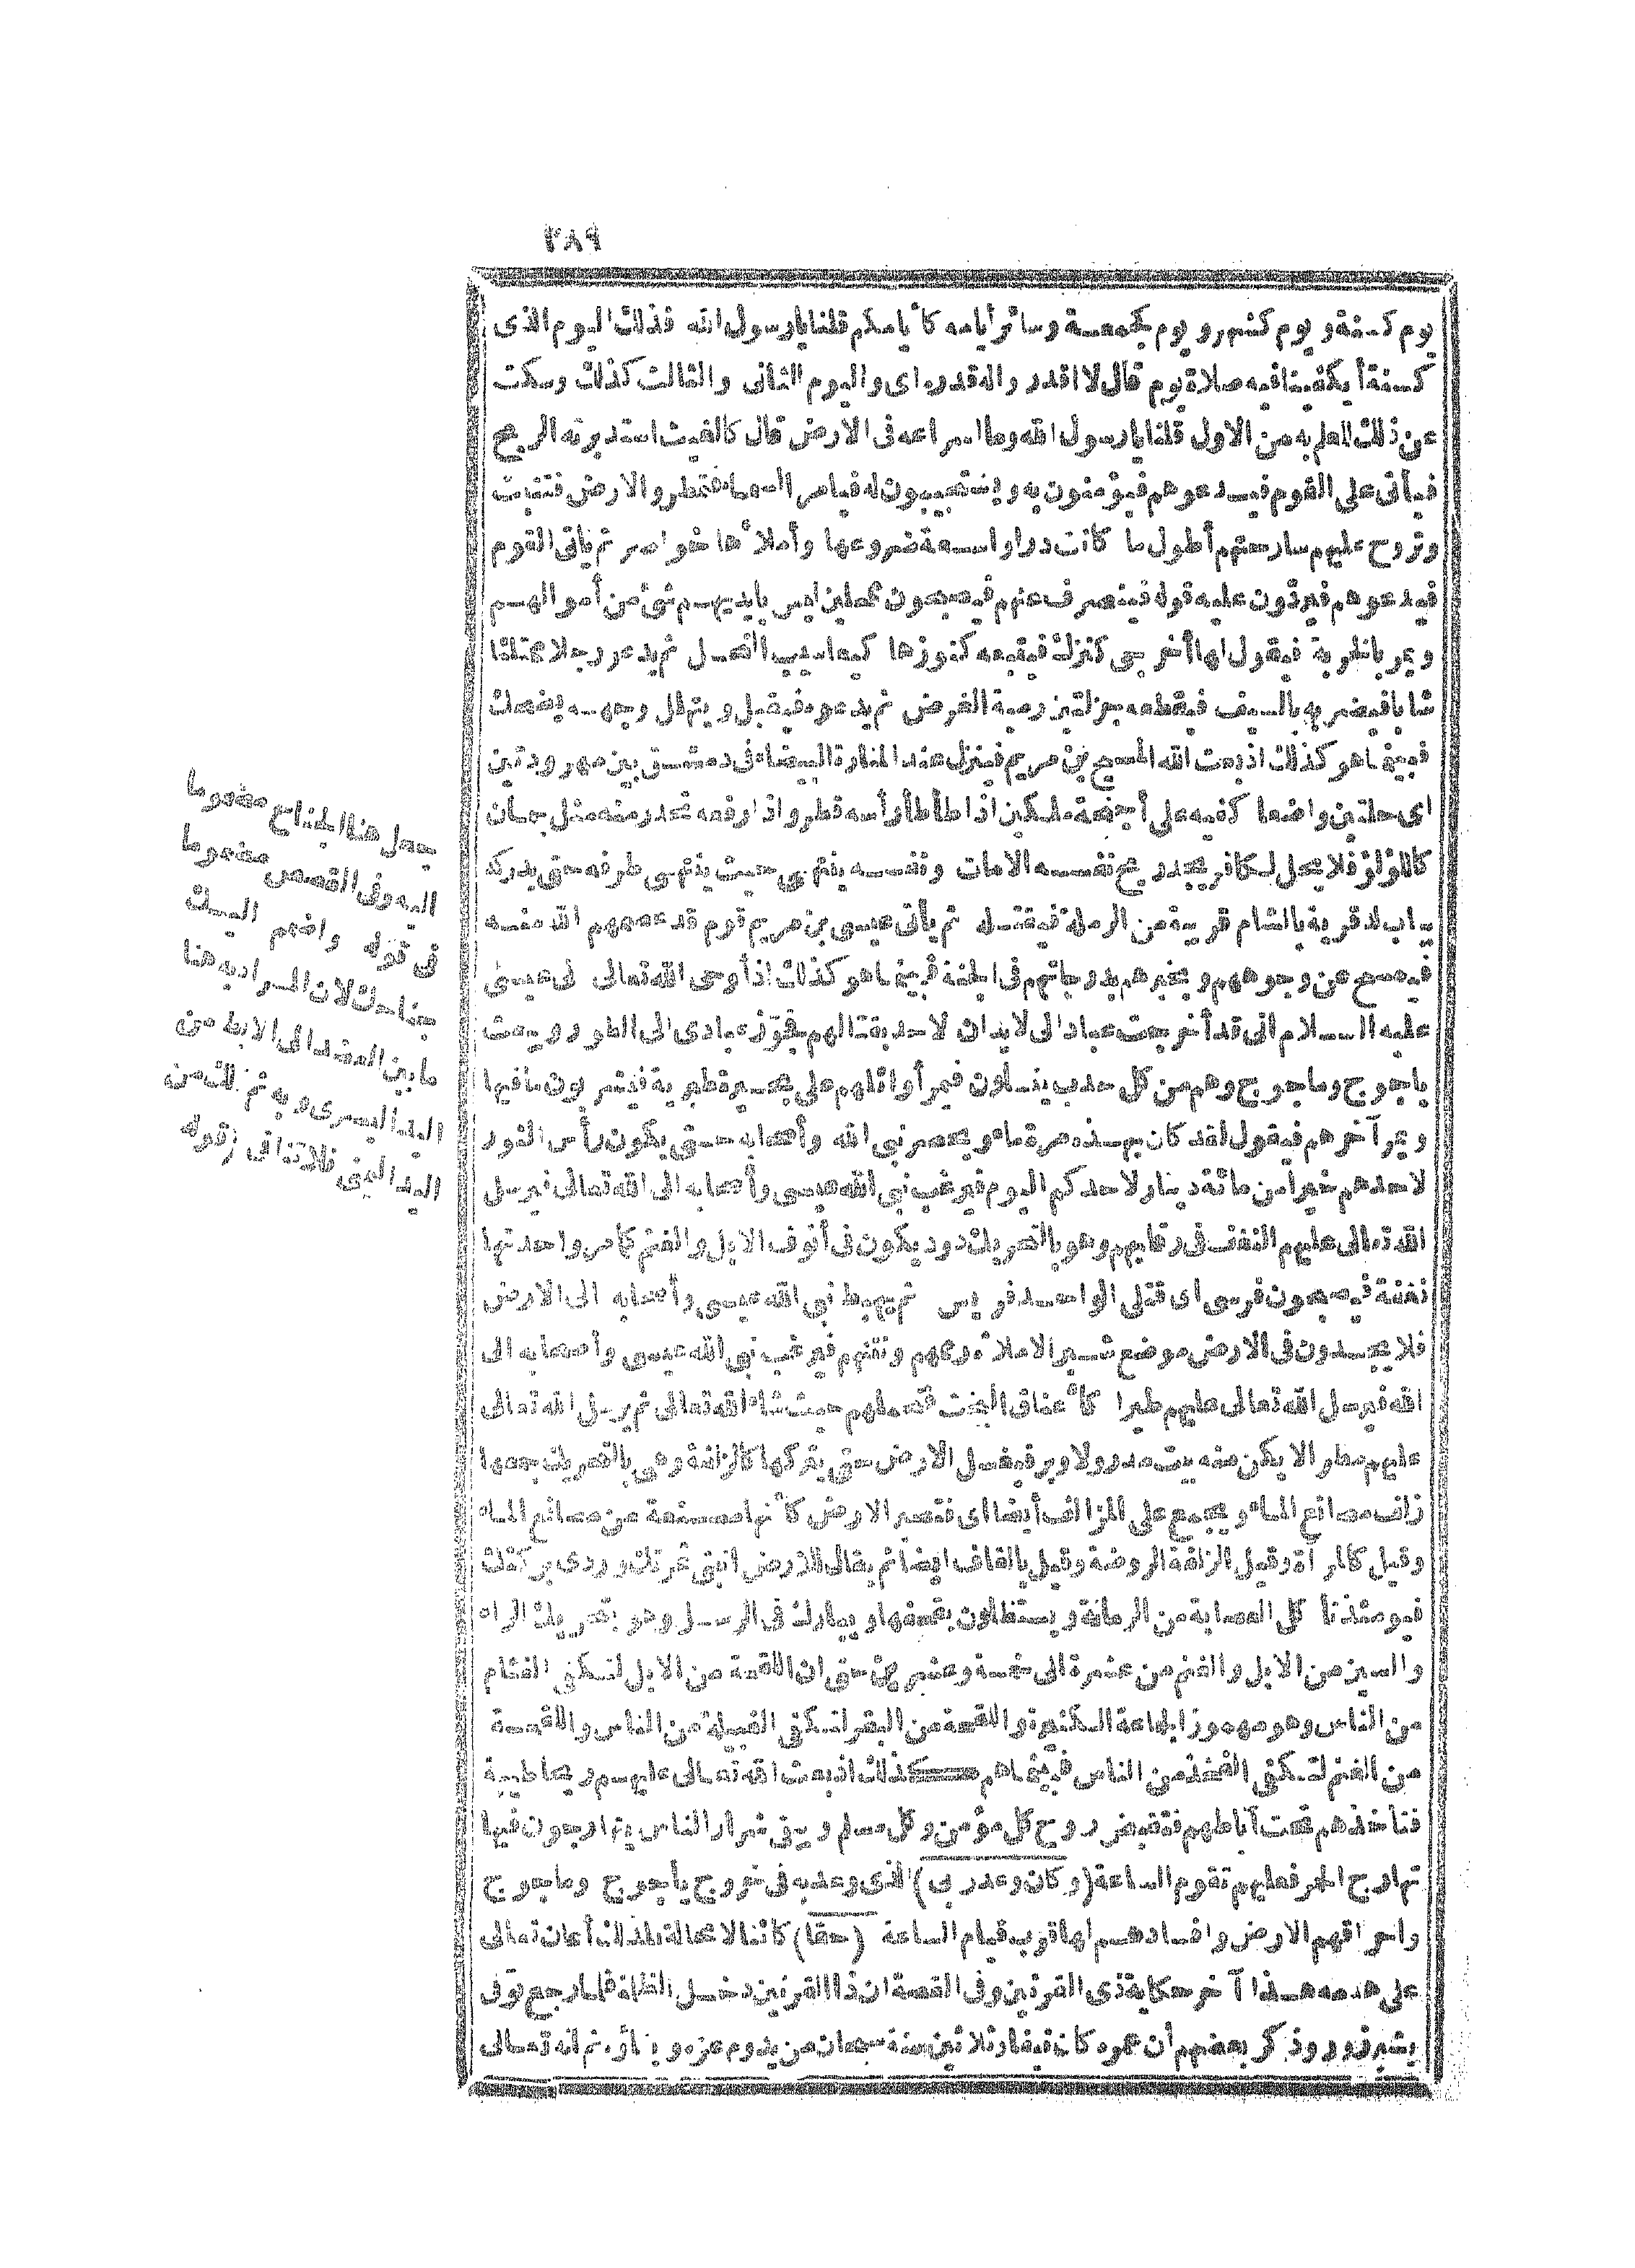 ٣٨٩
يوم كسنة ويوم كشهر ويوم كجمعة وسائر أيامه كأيامكم قلنا يا رسول الله فذلك اليوم الذى
كسنة أيكفينا فيه صلاة يوم قال لا اقدروا له قدره اى واليوم الثانى والثالث كذلك وسكت
عن ذلك للعلم به من الاول قلنا يا رسول الله وما اسراعه فى الارض قال كالغيث استدبرته الريح
فيأتى على القوم فيدعوهم فيؤمنون به ويستجيبون له فيامر السماء فتمطر والارض فتنبت
وتروح عليهم سارحتهم أطول ما كانت درا واسبغه ضروعها وأملأها خواصر ثم يأتى القوم
فيدعوهم فيردّون عليه قوله فينصرف عنهم فيصبحون ممحلين ليس بايديهم شئ من أموالهم
ويمر بالخربة فيقول لها أخرجى كنزك فيتبعه كنوزها كيعاسيب النحل ثم يدعو رجلا ممتلئا
شابا فيضربه بالسيف فيقطعه جزلتين رمية الغرض ثم يدعوه فيقبل ويتهلل وجهه يضحك
فبينما هو كذلك اذ بعث الله المسيح بن مريم فينزل عند المنارة البيضاء فى دمشق بين مهرودتين
اى حلتين واضعا كفيه على أجنحة ملكين اذا طأطأ رأسه قطر واذا رفعه تحدر منه مثل جمان
كاللؤلؤ فلا يحل لكافر يجد ريح نفسه الا مات ونفسه ينتهى حيث ينتهى طرفه حتى يدركه
بباب لد قرية بالشام قريبة من الرملة فيقتله ثم يأتى عيسى بن مريم قوم قد عصمهم الله منه
فيمسح عن وجوههم ويخبرهم بدرجاتهم فى الجنة فبينما هو كذلك اذ أوحى الله تعالى لى عيسى
عليه السلام انى قد أخرجت عبادا لى لا يدان لاحد بقتالهم فحوّز عبادى الى الطور ويبعث
ياجوج وماجوج وهم من كل حدب ينسلون فيمر أوائلهم على بحيرة طبرية فيشربون ما فيها
ويمر آخرهم فيقول لقد كان بهذه مرة ماء ويحصر نبى الله وأصحابه حتى يكون رأس الثور
لاحدهم خيرا من مائة دينار لاحدكم اليوم فيرغب نبى الله عيسى وأصحابه الى الله تعالى فيرسل
الله تعالى عليهم النغف فى رقابهم وهو بالتحريك دود يكون فى أنوف الابل والغنم كما مر واحدتها
نغفة فيصبحون فرسى اى قتلى الواحد فريس ثم يهبط نبى الله عيسى وأصحابه الى الارض
فلا يجدون فى الارض موضع شبر الا ملأه زهمهم ونتنهم فيرغب نبى الله عيسى وأصحابه الى
الله فيرسل الله تعالى عليهم طيرا كأعناق البخت فتحملهم حيث شاء الله تعالى ثم يرسل الله تعالى
عليهم مطرا لا يكن منه بيت مدر ولا وبر فيغسل الارض حتى يتركها كالزلفة وهى بالتحريك جمعها
زلف مصانع الماء ويجمع على المزالف أيضا اى فتصير الارض كأنها مصنعة من مصانع الماء
وقيل كالمرآة وقيل الزلفة الروضة وقيل بالقاف ايضا ثم يقال للارض انبتى ثمرتك وردى بركتك
فيومئذ تأكل العصابة من الرمانة ويستظلون بقحفها ويبارك فى الرسل وهو بتحريك الراء
والسين من الابل والغنم من عشرة الى خمسة وعشرين حتى ان اللقحة من الابل لتكفى الفئام
من الناس وهو مهموز الجماعة الكثيرة واللقحة من البقر لتكفى القبيلة من الناس واللقحة
من الغنم لتكفى الفخذ من الناس فبينما هم كذلك اذ بعث الله تعالى عليهم ريحا طيبة
فتاخذهم تحت آباطهم فتقبض روح كل مؤمن وكل مسلم ويبقى شرار الناس يتهارجون فيها
تهارج الحمر فعليهم تقوم الساعة (وكان وعد ربى) الذى وعد به فى خروج يأجوج وماجوج
واحراقهم الارض وافسادهم لها قرب قيام الساعة (حقا) كائنا لا محالة فلذلك أعان تعالى
على هدمه هذا آخر حكاية ذى القرنين وفى القصة ان ذا القرنين دخل الظلمة فلما رجع توفى
بشيرزور وذكر بعضهم أن عمره كان نيفا وثلاثين سنة سبحان من يدوم عزه وبقاؤه ثم انه تعالى
جعل هنا الجناح مضموما
اليه وفى القصص مضموما
فى قوله واضمم اليك
جناحك لان المراد به هنا
ما بين العضد الى الابط من
اليد اليسرى وبه ثم ذلك من
اليد اليمنى فلا تنافى (قوله